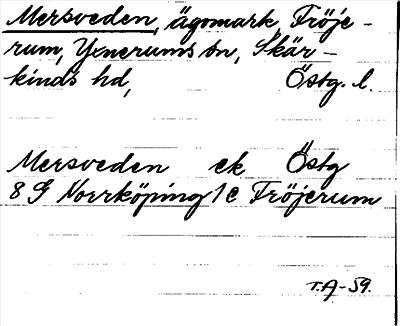 Mersveden, ägomark, Fröje-
rum, Yxnerums sn, Skär-
kinds hd, Östg. l.
Mersveden ek Östg
8 G Norrköping 1c Fröjerum
T.A-59.